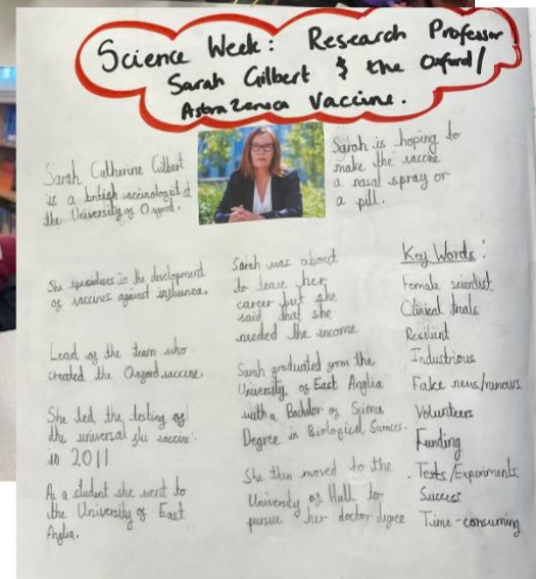 Science Week: Research Professor
Sarah Gilbert & the Oxford/
AstraZeneca Vaccine.
Sarah Catherine Gilbert
is a british vaccinologist at
the University of Oxford.
Sarah is hoping to
make the vaccine
a nasal spray or
a pill.
She specialises in the development
of vaccines against influenza.
Lead of the team who
created the Oxford vaccine.
She led the testing of
the universal flu vaccine
in 2011
As a student she went to
the University of East
Anglia.
Sarah was about
to leave her
career but she
said that she
needed the income.
Sarah graduated from the
University of East Anglia
with a Bachelor of Science
Degree in Biological Sciences.
She then moved to the
University of Hull to
pursue her doctor degree
Key Words:
Female scientist
Clinical trials
Resilient
Industrious
Fake news/rumours
Volunteers
Funding
Tests/Experiments
Success
Time-consuming